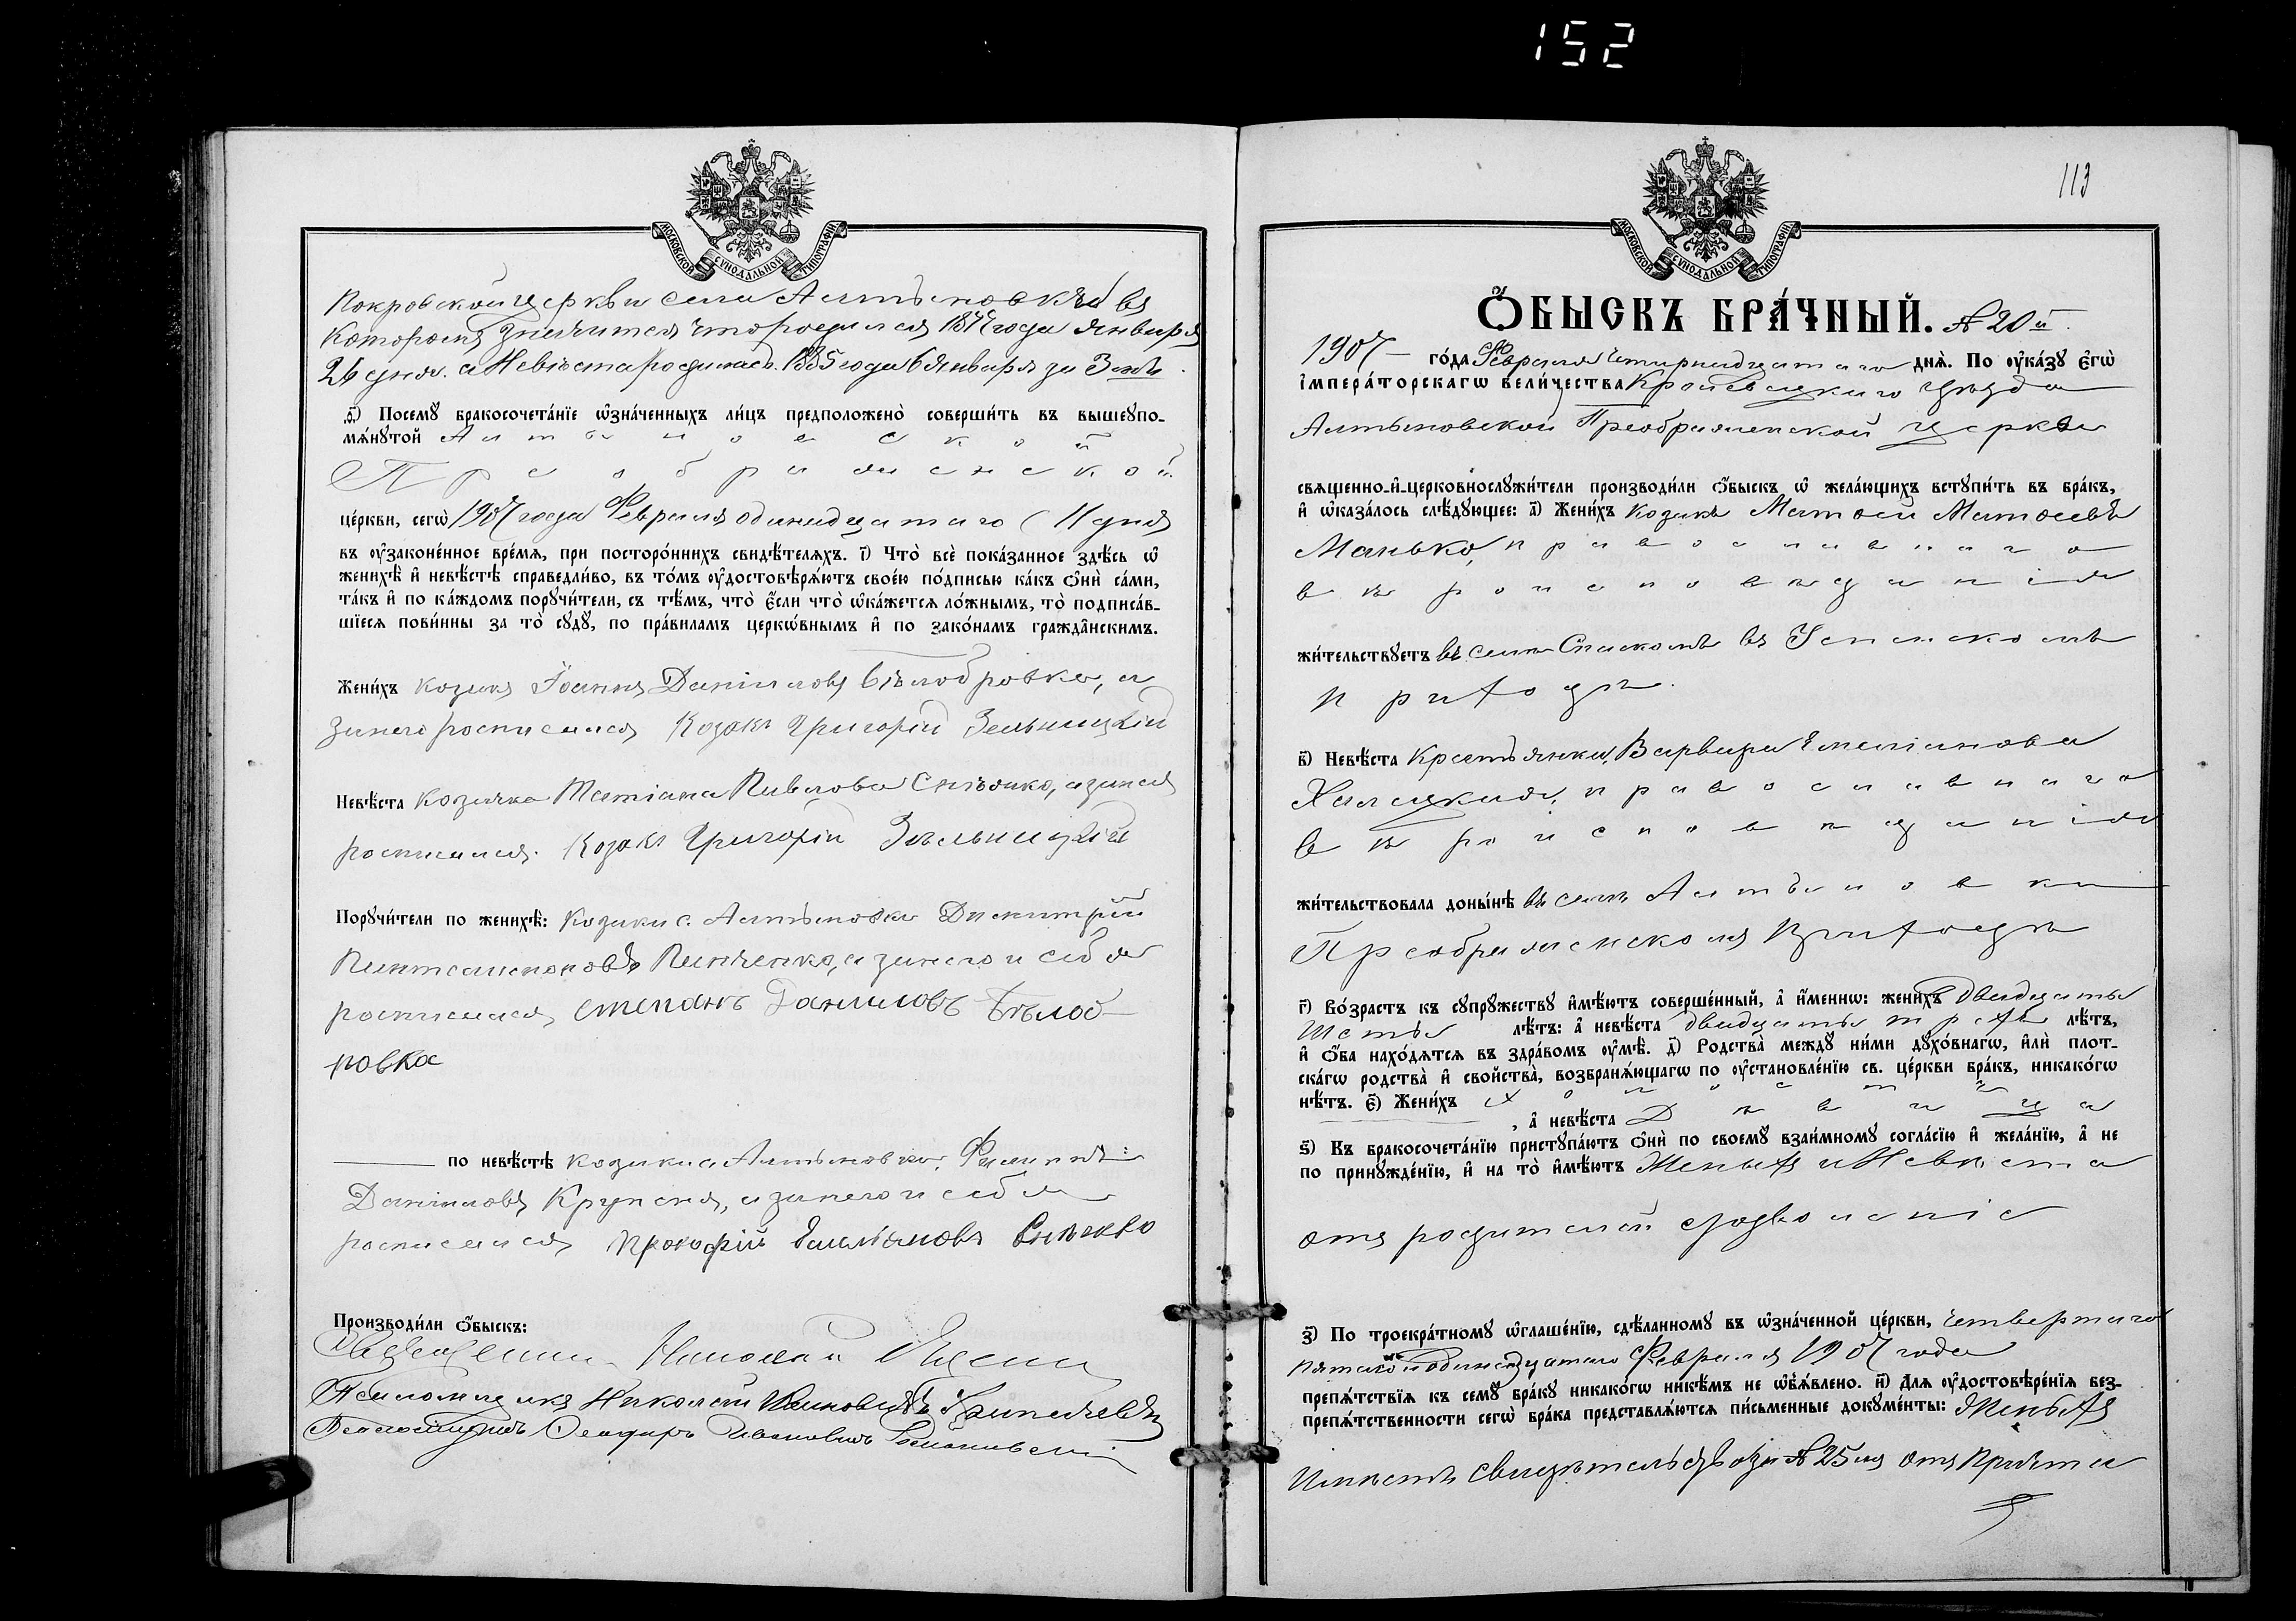 152
МОСКОВСКОЙ СУНОДАЛЬНОЙ ТИПОГРАФІИ
Покровской церкви села Алтыновкѣ въ
которомъ значится что родился года января
26 дня. а Невѣста родилась 1885 года 6 января за 3
Посемꙋ бракосочета́нїе ѡ҆зна́ченныхъ ли́цъ предположено̀ соверши́ть въ вышеꙋпо-
мѧ́нꙋтой Алтыновской
Преображенской
це́ркви, сегѡ̀ 1907 года Февраля одинадцатаго (11 дня
въ ᲂу҆зако́ненное вре́мѧ, при посторо́ннихъ свидѣ́телѧхъ. і҃) Что̀ всѐ пока́занное здѣ́сь ѡ҆
женихѣ̀ и҆ невѣ́стѣ справедли́во, въ то́мъ ᲂу҆достовѣрѧ́ютъ свое́ю по́дписью ка́къ ѻ҆нѝ са́ми,
та́къ и҆ по ка́ждомъ порꙋчи́тели, съ тѣ́мъ, что̀ є҆́сли что̀ ѡ҆ка́жетсѧ ло́жнымъ, то̀ подписа́в-
шїесѧ пови́нны за то̀ сꙋдꙋ̀, по пра́виламъ церкѡ́внымъ и҆ по зако́намъ гражда̑нскимъ.
Жени́хъ козакъ Іоаннъ Даніиловъ Бѣлобровка, а
занего росписался Козакъ Григорій
Невѣ́ста козачка Татіана Павлова а занея
росписался. Козакъ Григорій
Порꙋчи́тели по женихѣ̀: Козаки с. Алтыновки Димитрій
Пантелимоновъ Панченко, а занего и себя
росписался Степанъ Даниловъ Бѣлоб-
ровка
по невѣ́стѣ козаки с Алтыновки, Филиппъ
Даніиловъ а занего и себя
росписался Прокофій Емельяновъ
Производи́ли ѻ҆́быскъ:
Священникъ Николай
Псаломщикъ Николай
Псаломщикъ Ивановичъ
113
МОСКОВСКОЙ СУНОДАЛЬНОЙ ТИПОГРАФІИ
Ѻ҆́БЫСКЪ БРА́ЧНЫЙ. № 20й.
1907 го́да Февраля Четырнадцатаго днѧ̀. По ᲂу҆ка́зꙋ є҆гѡ̀
і҆мпера́торскагѡ вели́чества Кролевецкаго уѣзда
Алтыновской Преображенской церкви
свѧщенно-и҆-церковнослꙋжи́тели производи́ли ѻ҆́быскъ ѡ҆ жела́ющихъ встꙋпи́ть въ бра́къ,
и҆ ѡ҆каза́лось слѣ́дꙋющее: а҃) Жени́хъ козакъ Матѳей Матѳеевъ
Манько, православнаго
вѣроисповѣданія
жи́тельствꙋетъ въ селѣ Спаскомъ въ Успенскомъ
приходѣ.
в҃) Невѣ́ста крестьянка, Варвара Емеліанова
Халецкая, православнаго
вѣроисповѣданія
жи́тельствовала доны́нѣ въ селѣ Алтыновки
Преображенскомъ Приходѣ
г҃) Во́зрастъ къ сꙋпрꙋ́жествꙋ и҆мѣ́ютъ соверше́нный, а҆ и҆́меннѡ: жени́хъ двадцать
шесть лѣ́тъ: а҆ невѣ́ста двадцать трехъ лѣ́тъ,
и҆ ѻ҆́ба нахо́дѧтсѧ въ здра́вомъ ᲂу҆мѣ̀. д҃) Родства̀ междꙋ̀ ни́ми дꙋхо́внагѡ, и҆лѝ плот-
ска́гѡ родства̀ и҆ свойства̀, возбранѧ́ющагѡ по ᲂу҆становле́нїю св. це́ркви бра́къ, никако́гѡ
нѣ́тъ. є҃) Жени́хъ холостъ
, а҆ невѣ́ста Дѣвица
ѕ҃) Къ бракосочета́нїю пристꙋпа́ютъ ѻ҆нѝ по своемꙋ̀ взаи́мномꙋ согла́сїю и҆ жела́нїю, а҆ не
по принꙋжде́нїю, и҆ на то̀ и҆мѣ́ютъ Женихъ и Невѣста
отъ родителей дозволеніе
з҃) По троекра́тномꙋ ѡ҆глаше́нїю, сдѣ́ланномꙋ въ ѡ҆зна́ченной це́ркви, четвертаго
одинадцатаго Февраля 1907 года
препѧ́тствїѧ къ семꙋ̀ бра́кꙋ никако́гѡ никѣ́мъ не ѡ҆б̾ѧ́влено. и҃) Длѧ ᲂу҆достовѣре́нїѧ без-
препѧ́тственности сегѡ̀ бра́ка представлѧ́ютсѧ пи́сьменные докꙋме́нты: Женихъ
имѣетъ свидѣтельство за № 25мъ отъ Причта